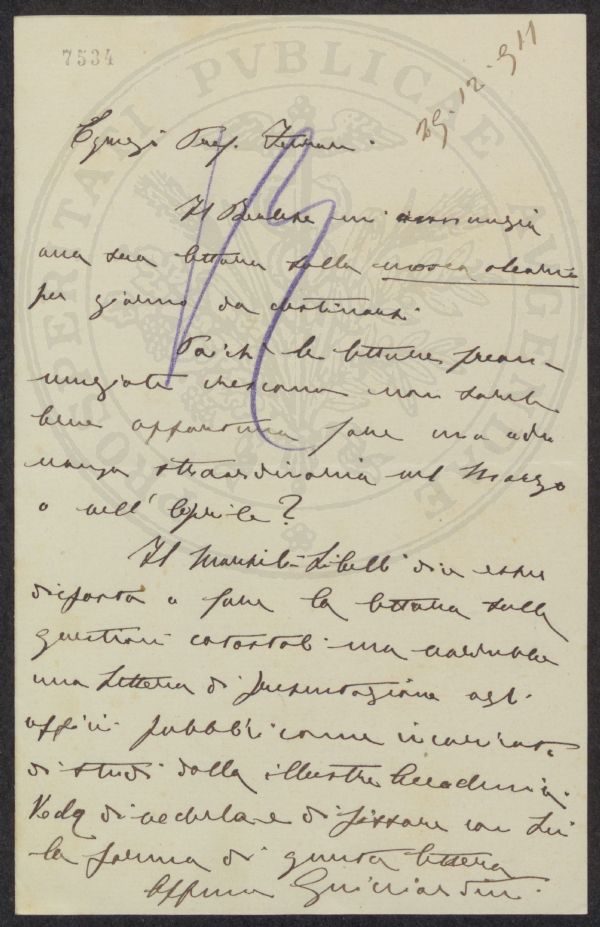 7534
PROSPERITATI PVBLICAE AVGENDAE
29.12.911
Egregio Prof.
Il mi annunzia
una sua lettura sulla mosca olearia
per giorno da destinarsi.
Poichè le letture prean-
nunziate crescono non sareb
bene opportuno fare una adu
nanza straordinaria nel Marzo
o nell' Aprile?
Il Mansili-Libelli dice esser
disposto a fare la lettura sulle
questioni catastali ma
una lettera di presentazione agli
uffici pubblici come incaricato
di studi dalla illustre Accademia.
Veda di vederla e di fissare con Lui
la forma di questa lettera
Guicciardini.